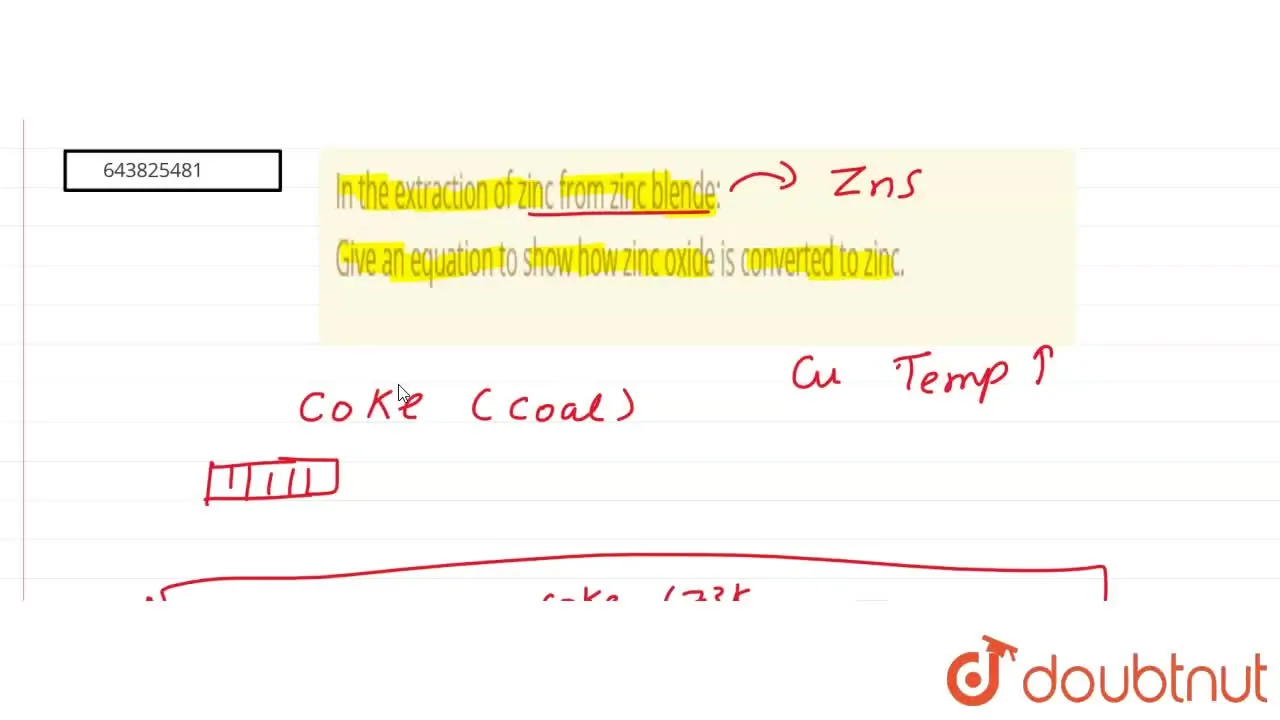 643825481
In the extraction of zinc from zinc blende: ZnS
Give an equation to show how zinc oxide is converted to zinc.
Cu Temp ↑
Coke (coal)
coke
doubtnut